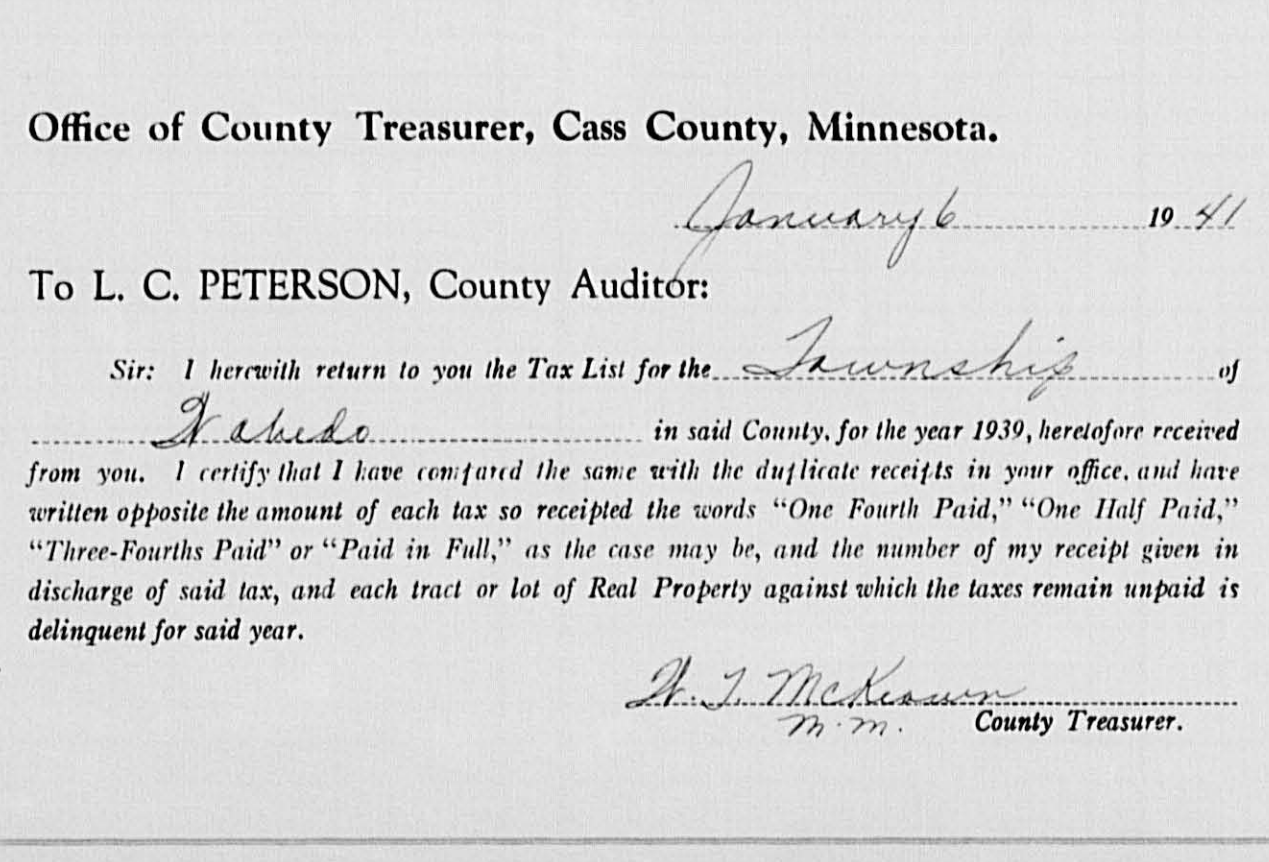 Office of County Treasurer, Cass County, Minnesota.
January 6 1941
To L. C. PETERSON, County Auditor:
Sir: I herewith return to you the Tax List for the Township of
Wabedo in said County, for the year 1939, heretofore received
from you. I certify that I have compared the same with the duplicate receipts in your office, and have
written opposite the amount of each tax so receipted the words “One Fourth Paid,” “One Half Paid,”
“Three-Fourths Paid” or “Paid in Full,” as the case may be, and the number of my receipt given in
discharge of said tax, and each tract or lot of Real Property against which the taxes remain unpaid is
delinquent for said year.
W. T. McKeown
M. M. County Treasurer.